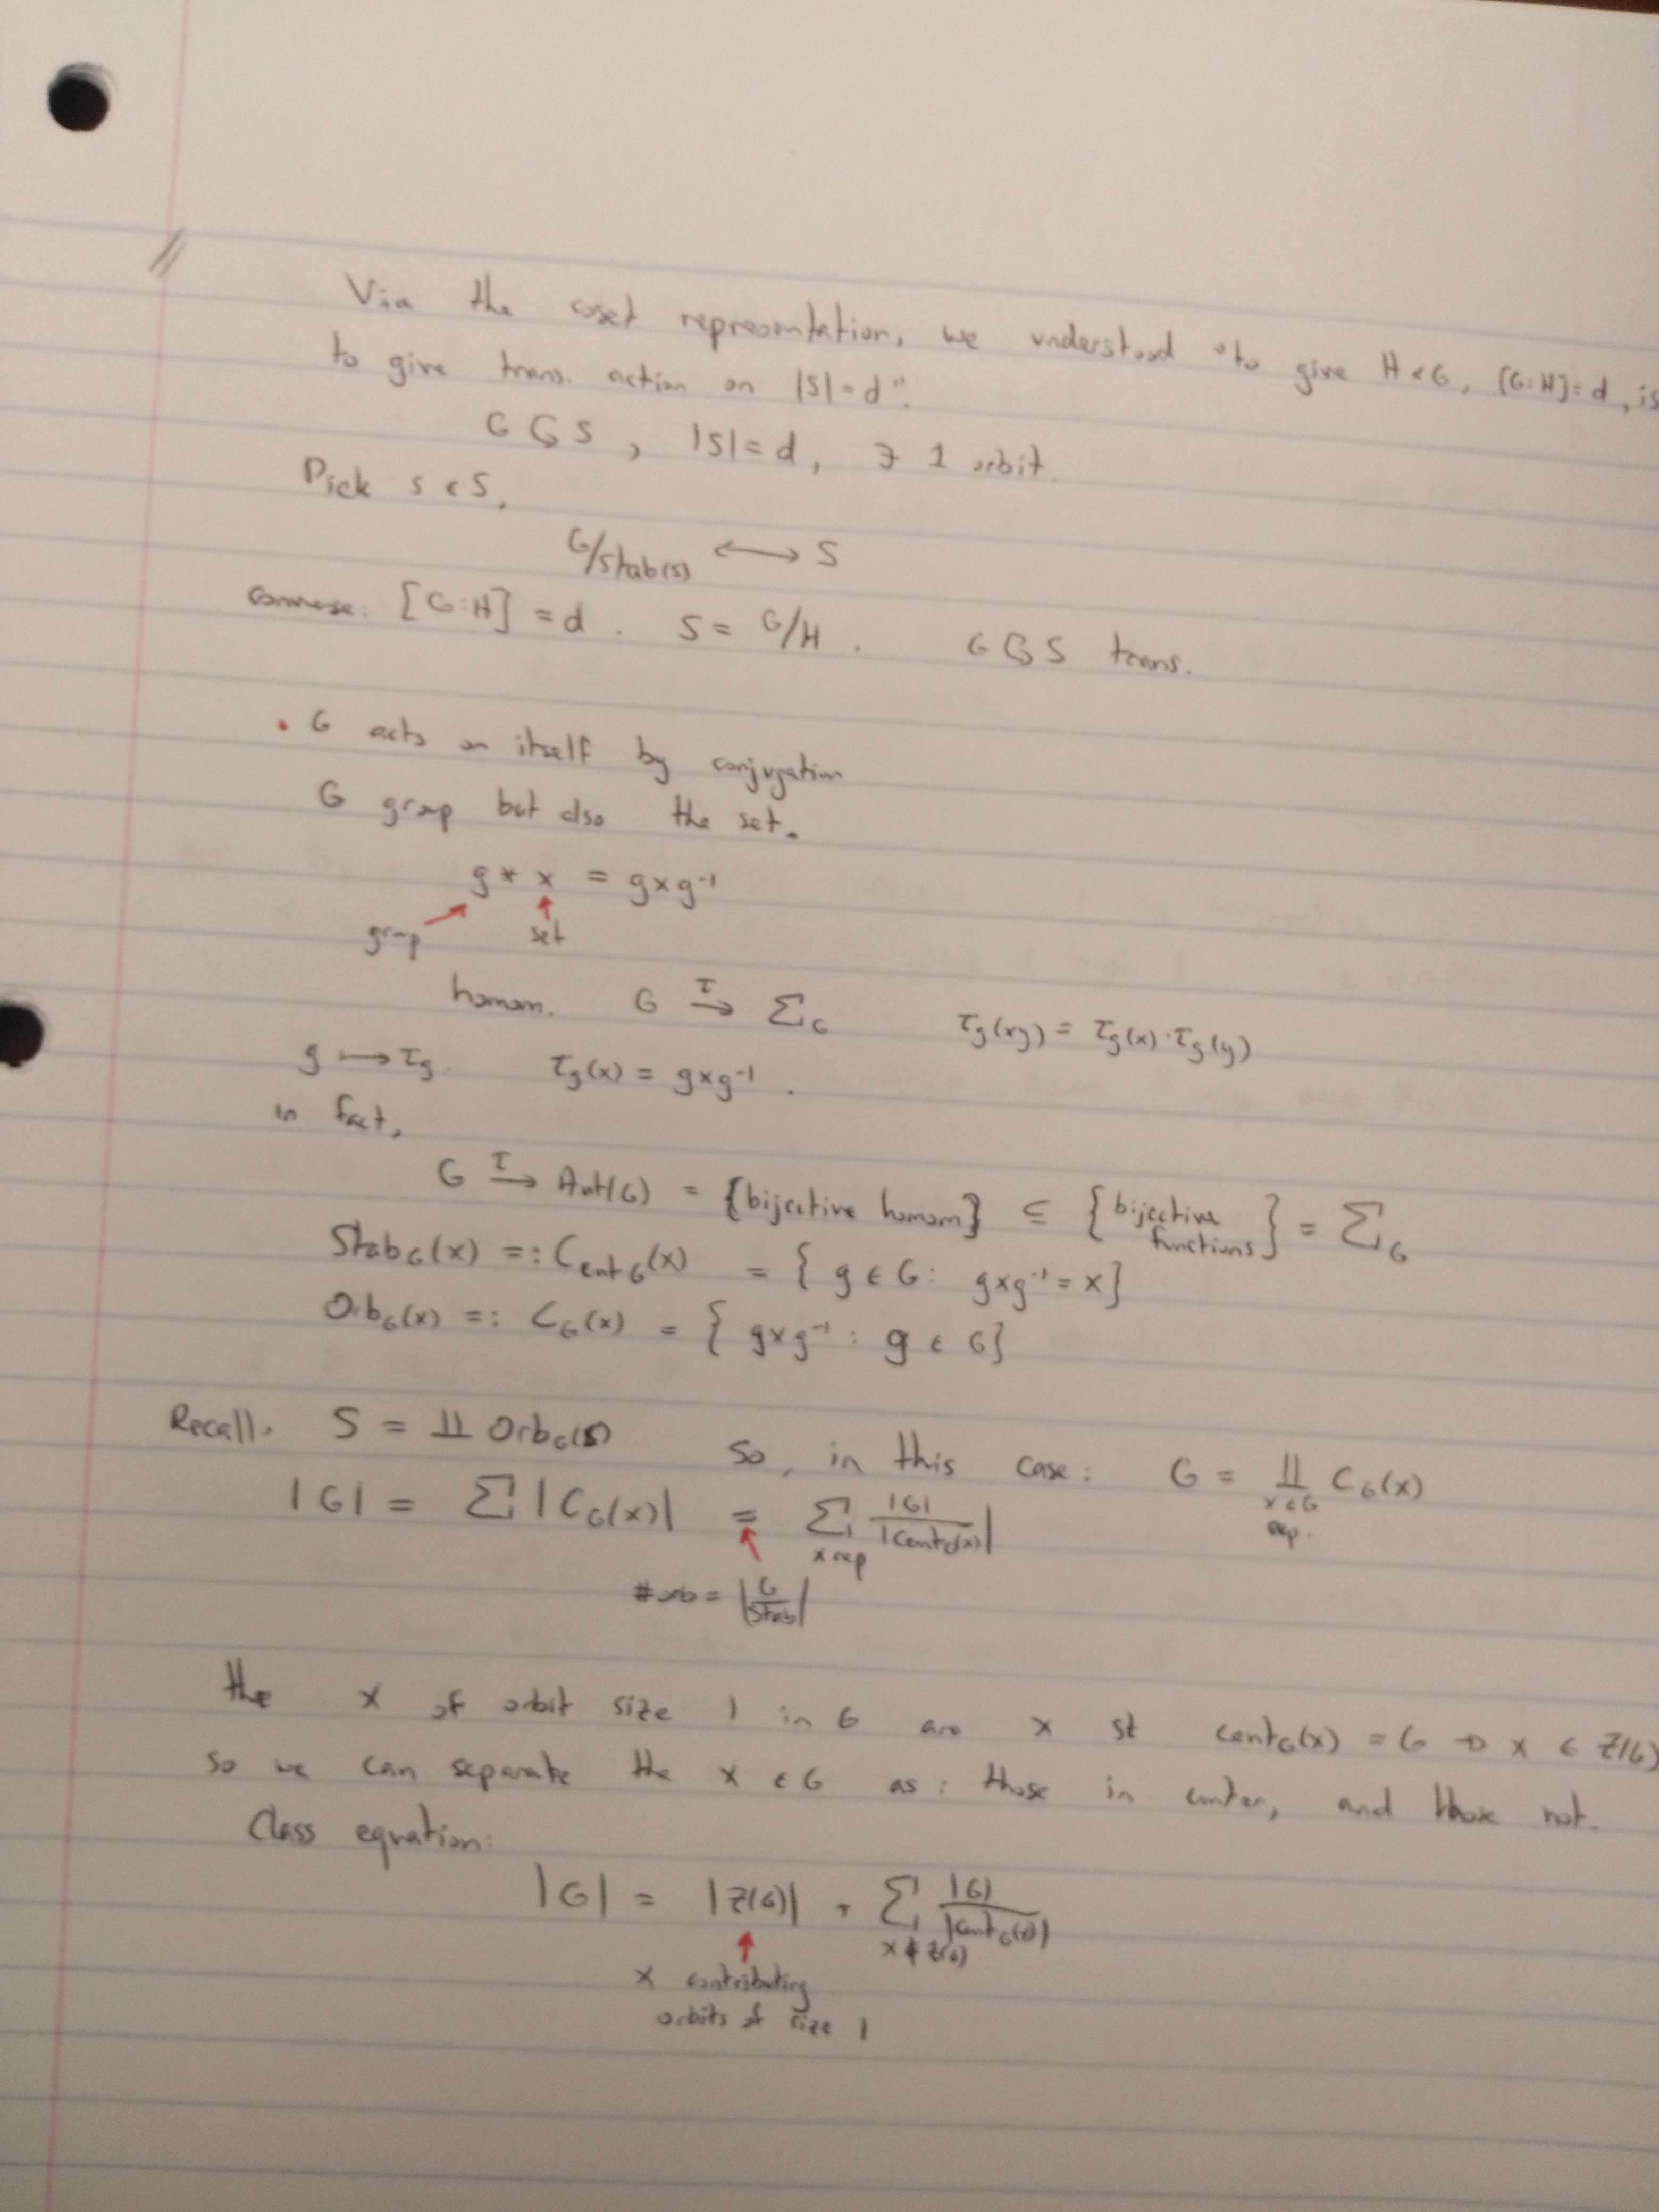 Via the coset represntation, we understood "to give H < G, [G:H] = d, is
to give trans. action on |S| = d".
G ↻ S, |S| = d, ∃ 1 orbit.
Pick s ∈ S.
G/Stab(s) ⟷ S
Converse: [G:H] = d. S = G/H. G ↻ S trans.
• G acts on itself by conjugation
G group but also the set.
g * x = gxg⁻¹
group set
homom. G →^τ Σ_G τ_g(xy) = τ_g(x)·τ_g(y)
g ⟼ τ_g. τ_g(x) = gxg⁻¹.
in fact,
G →^τ Aut(G) = {bijective homom} ⊆ {bijective functions} = Σ_G
Stab_G(x) =: Cent_G(x) = {g ∈ G: gxg⁻¹ = x}
Orb_G(x) =: C_G(x) = {gxg⁻¹ : g ∈ G}
Recall. S = ∐ Orb_G(s) so, in this case: G = ∐_{x∈G rep.} C_G(x)
|G| = Σ |C_G(x)| = Σ_{x rep} |G|/|Cent_G(x)|
#orb = |G/Stab|
the x of orbit size 1 in G are x st Cent_G(x) = G → x ∈ Z(G)
so we can separate the x ∈ G as: those in center, and those not.
Class equation:
|G| = |Z(G)| + Σ_{x∉Z(G)} |G|/|Cent_G(x)|
x contributing
orbits of size 1